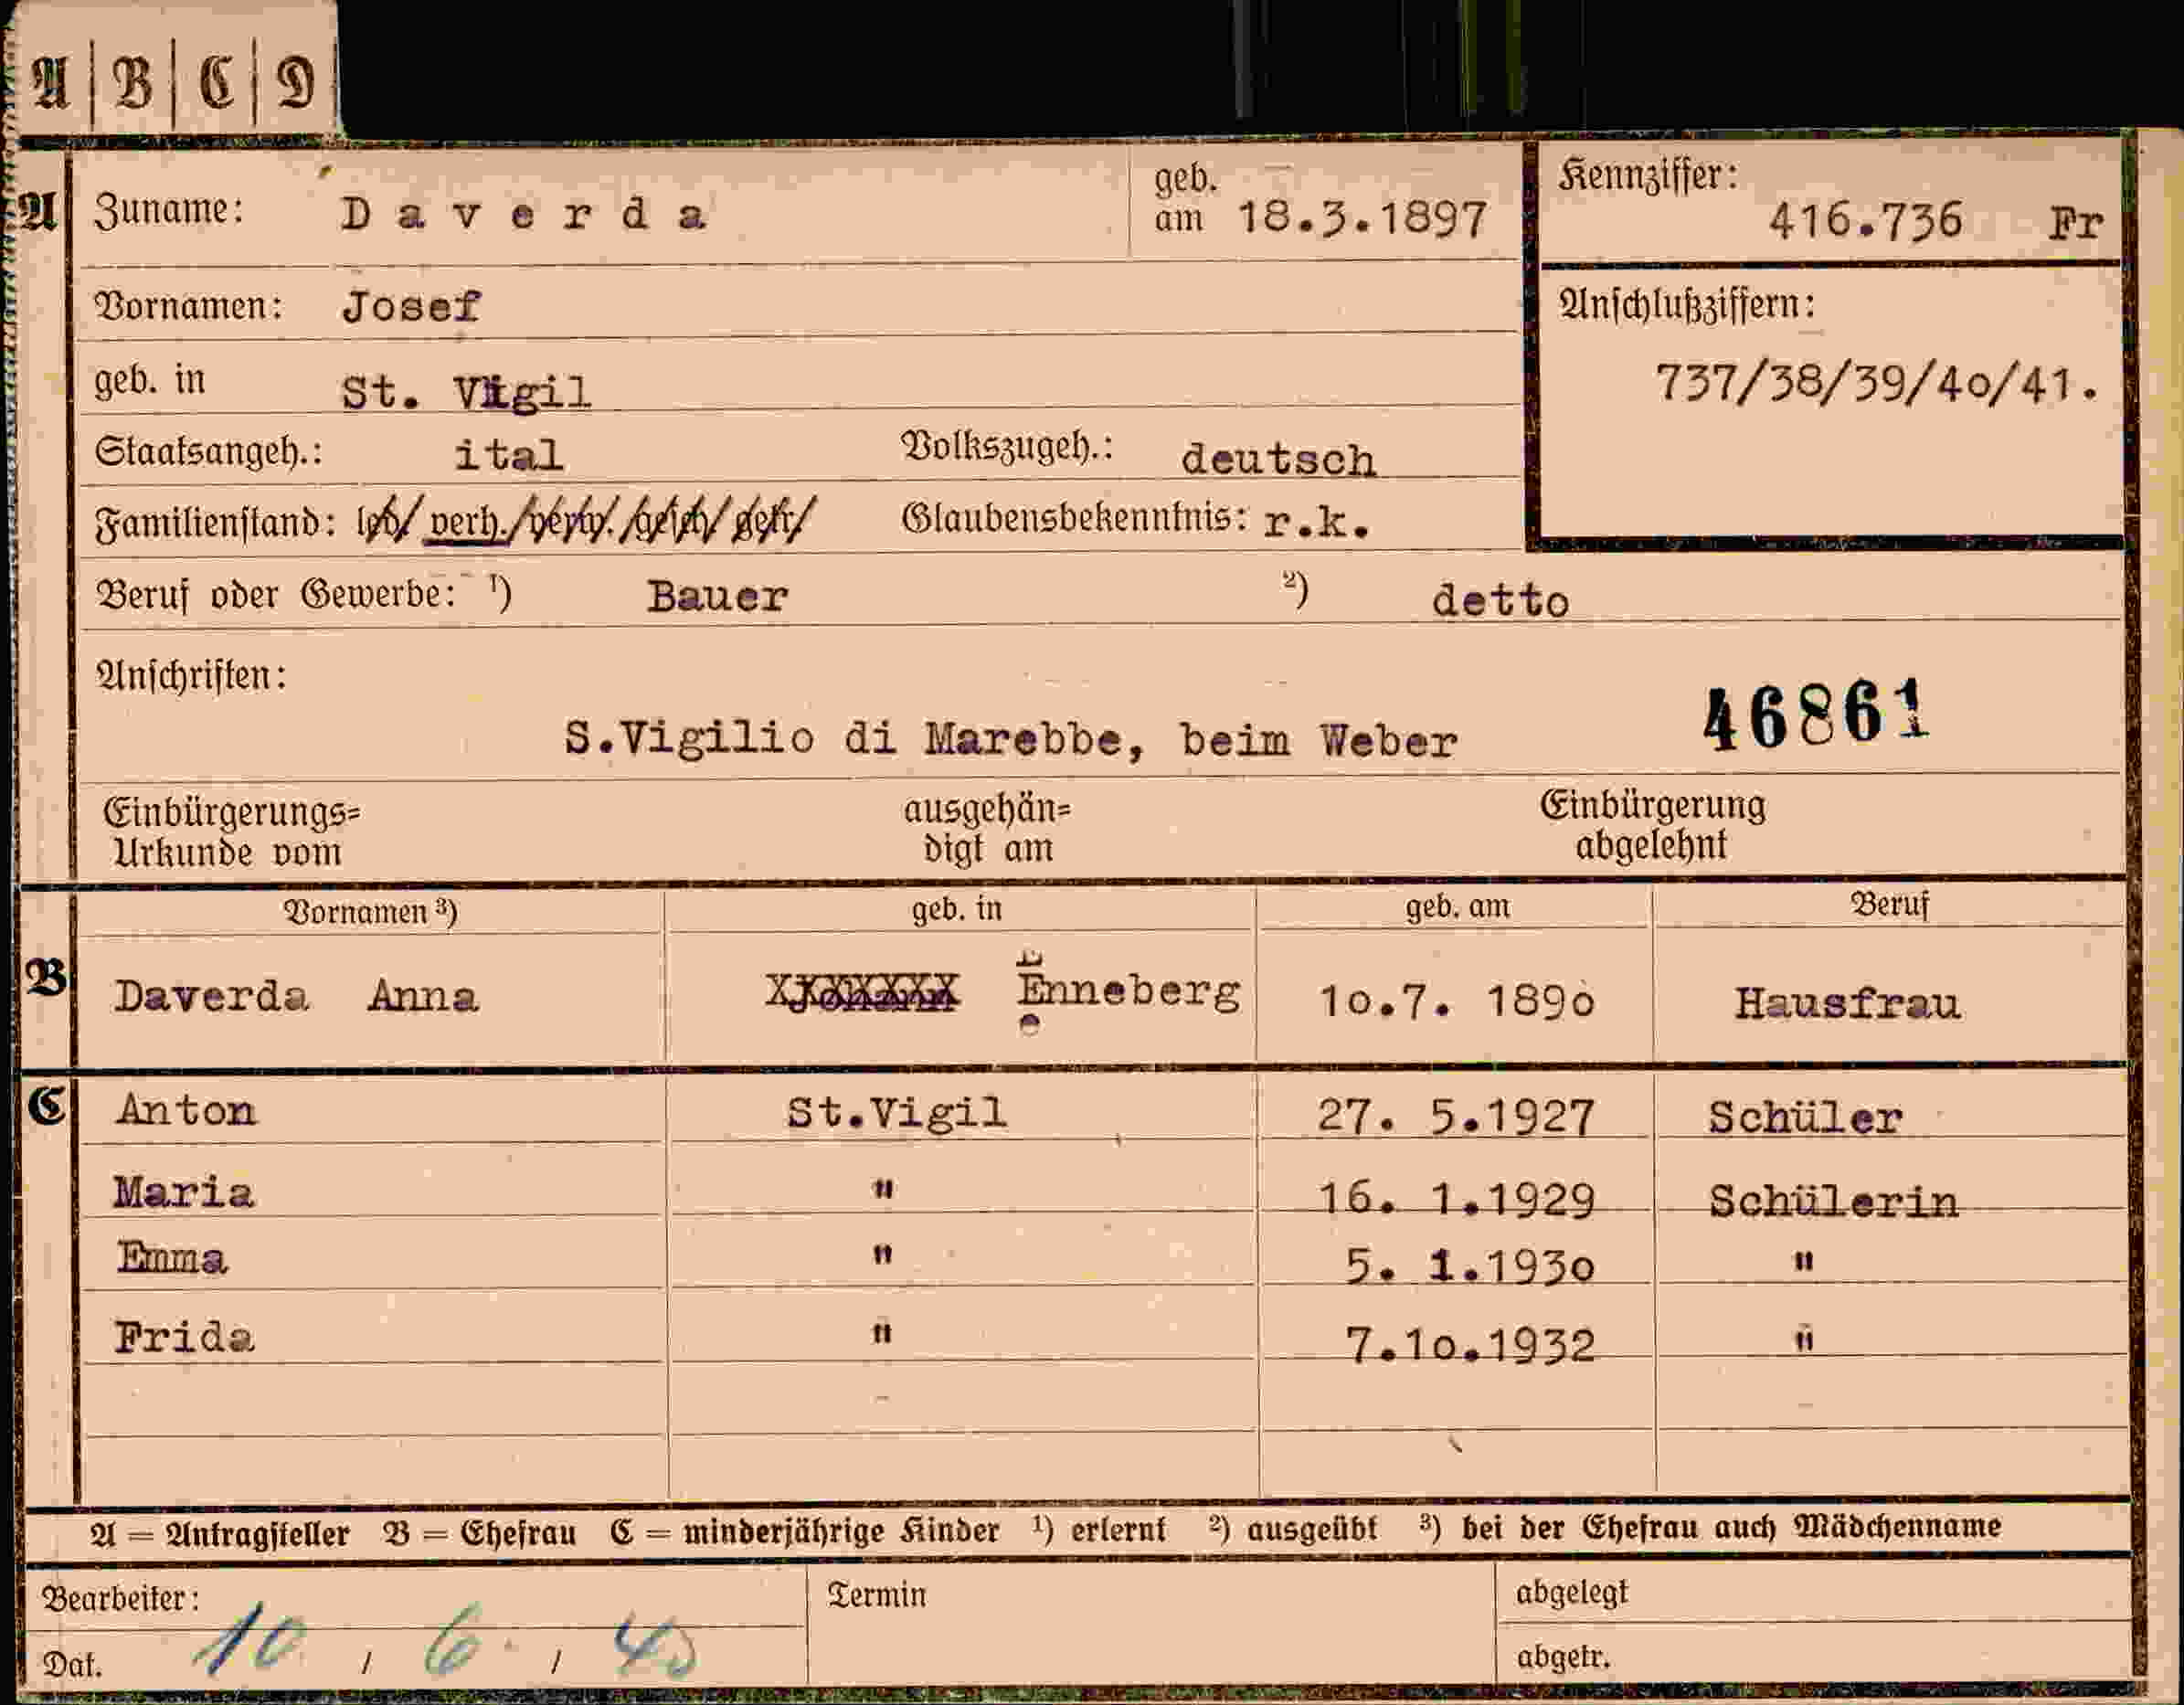 A | B | C | D
A Zuname: Daverda geb. am 18.3.1897 Kennziffer: 416.736 Fr
Vornamen: Josef Anschlußziffern:
geb. in St. Vigil 737/38/39/40/41.
Staatsangeh.: ital Volkszugeh.: deutsch
Familienstand: led/ verh./verw./gesch/ getr/ Glaubensbekenntnis: r.k.
Beruf oder Gewerbe: 1) Bauer 2) detto
Anschriften:
S.Vigilio di Marebbe, beim Weber 46861
Einbürgerungs= ausgehän= Einbürgerung
Urkunde vom digt am abgelehnt
Vornamen 3) geb. in geb. am Beruf
B Daverda Anna Enneberg 10.7. 1890 Hausfrau
C Anton St.Vigil 27. 5.1927 Schüler
Maria " 16. 1.1929 Schülerin
Emma " 5. 1.1930 "
Frida " 7.10.1932 "
A = Antragsteller B = Ehefrau C = minderjährige Kinder 1) erlernt 2) ausgeübt 3) bei der Ehefrau auch Mädchenname
Bearbeiter: Termin abgelegt
Dat. 10 / 6 / 40 abgetr.